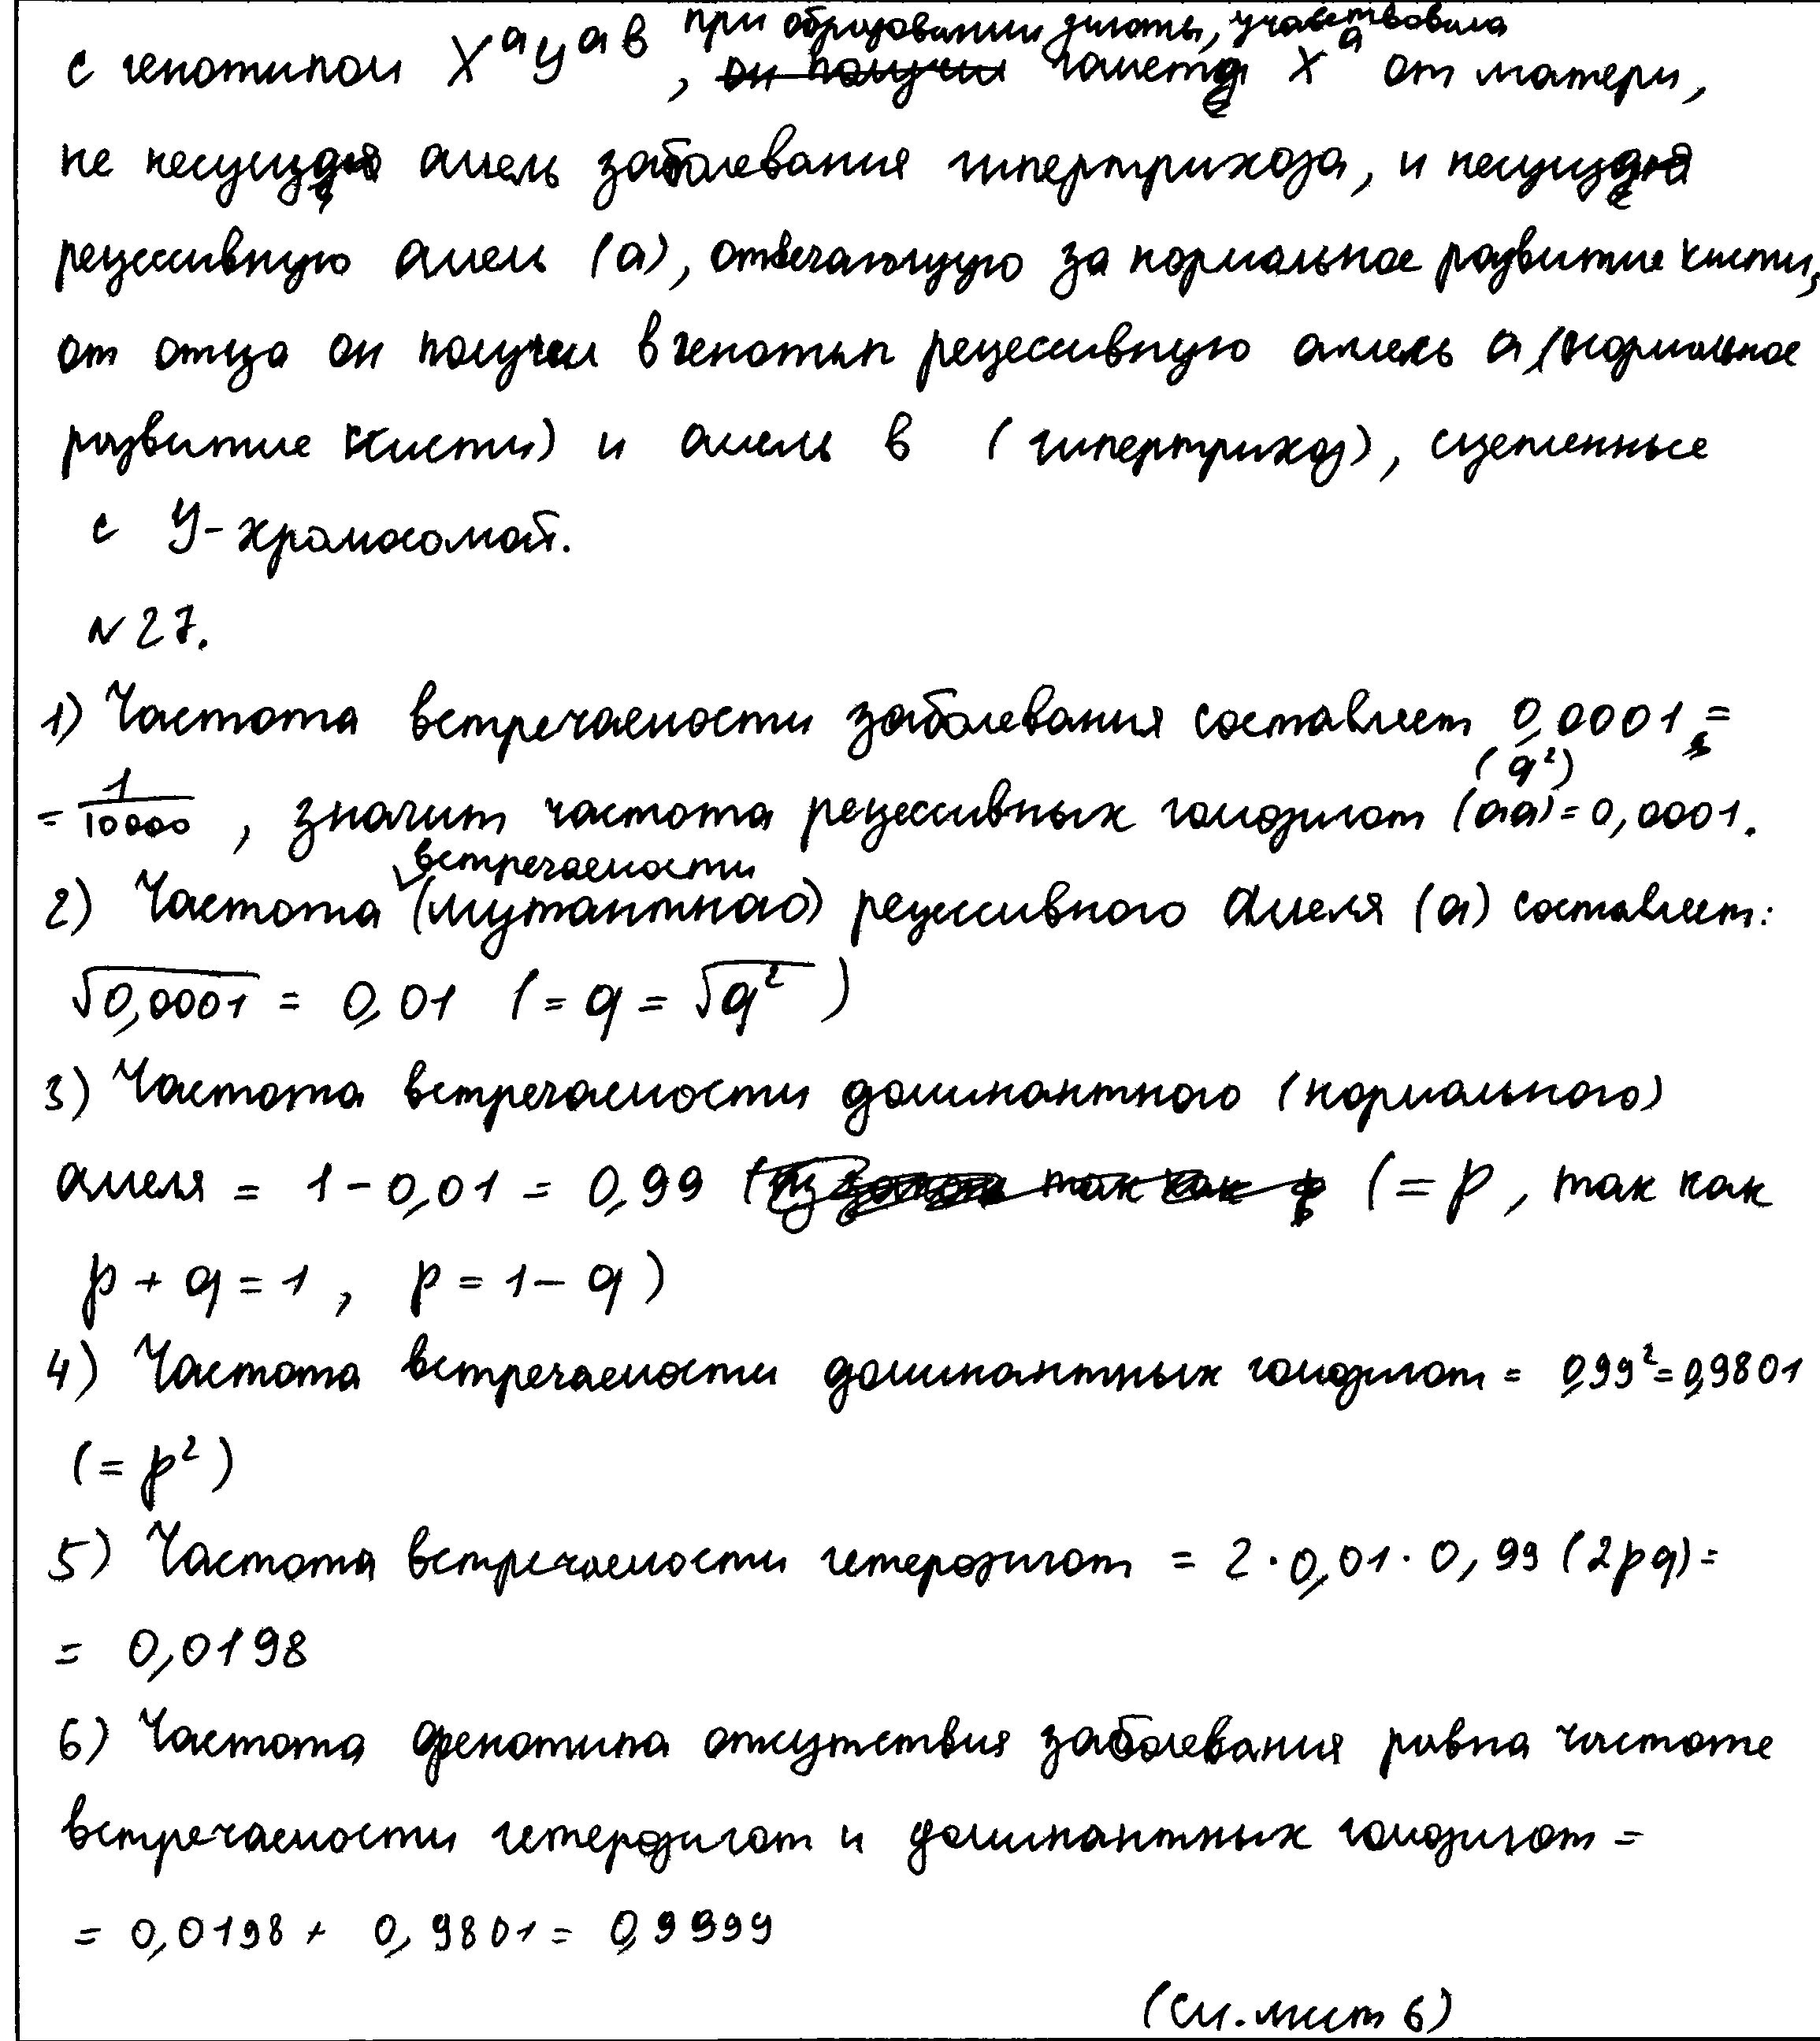 при образовании зиготы, участвовала
с генотипом XᵃYᵃᵇ, он получил гамета Xᵃ от матери,
не несущая аллель заболевания гипертрихоза, и несущая
рецессивную аллель (а), отвечающую за нормальное развитие кисти,
от отца он получил в генотип рецессивную аллель а (нормальное
развитие кисти) и аллель в (гипертрихоз), сцепленные
с Y-хромосомой.
N 27.
1) Частота встречаемости заболевания составляет 0,0001 =
= 1/10000, значит частота рецессивных гомозигот (аа) (q²) = 0,0001.
2) Частота встречаемости (мутантного) рецессивного аллеля (а) составляет:
√0,0001 = 0,01 (= q = √q²)
3) Частота встречаемости доминантного (нормального)
аллеля = 1 - 0,01 = 0,99 так как (= p, так как
p + q = 1, p = 1 - q)
4) Частота встречаемости доминантных гомозигот = 0,99² = 0,9801
(= p²)
5) Частота встречаемости гетерозигот = 2 · 0,01 · 0,99 (2pq) =
= 0,0198
6) Частота фенотипа отсутствия заболевания равна частоте
встречаемости гетерозигот и доминантных гомозигот =
= 0,0198 + 0,9801 = 0,9999
(см. лист 6)